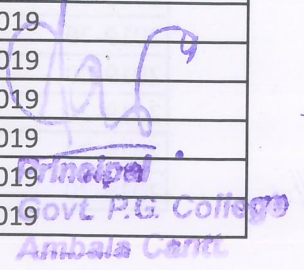 019
019
019
019
019
Principal
019
Govt. P.G. College
Ambala Cantt.